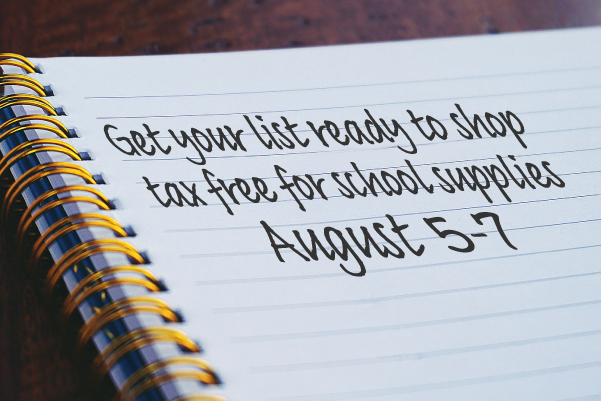 Get your list ready to shop
tax free for school supplies
August 5-7